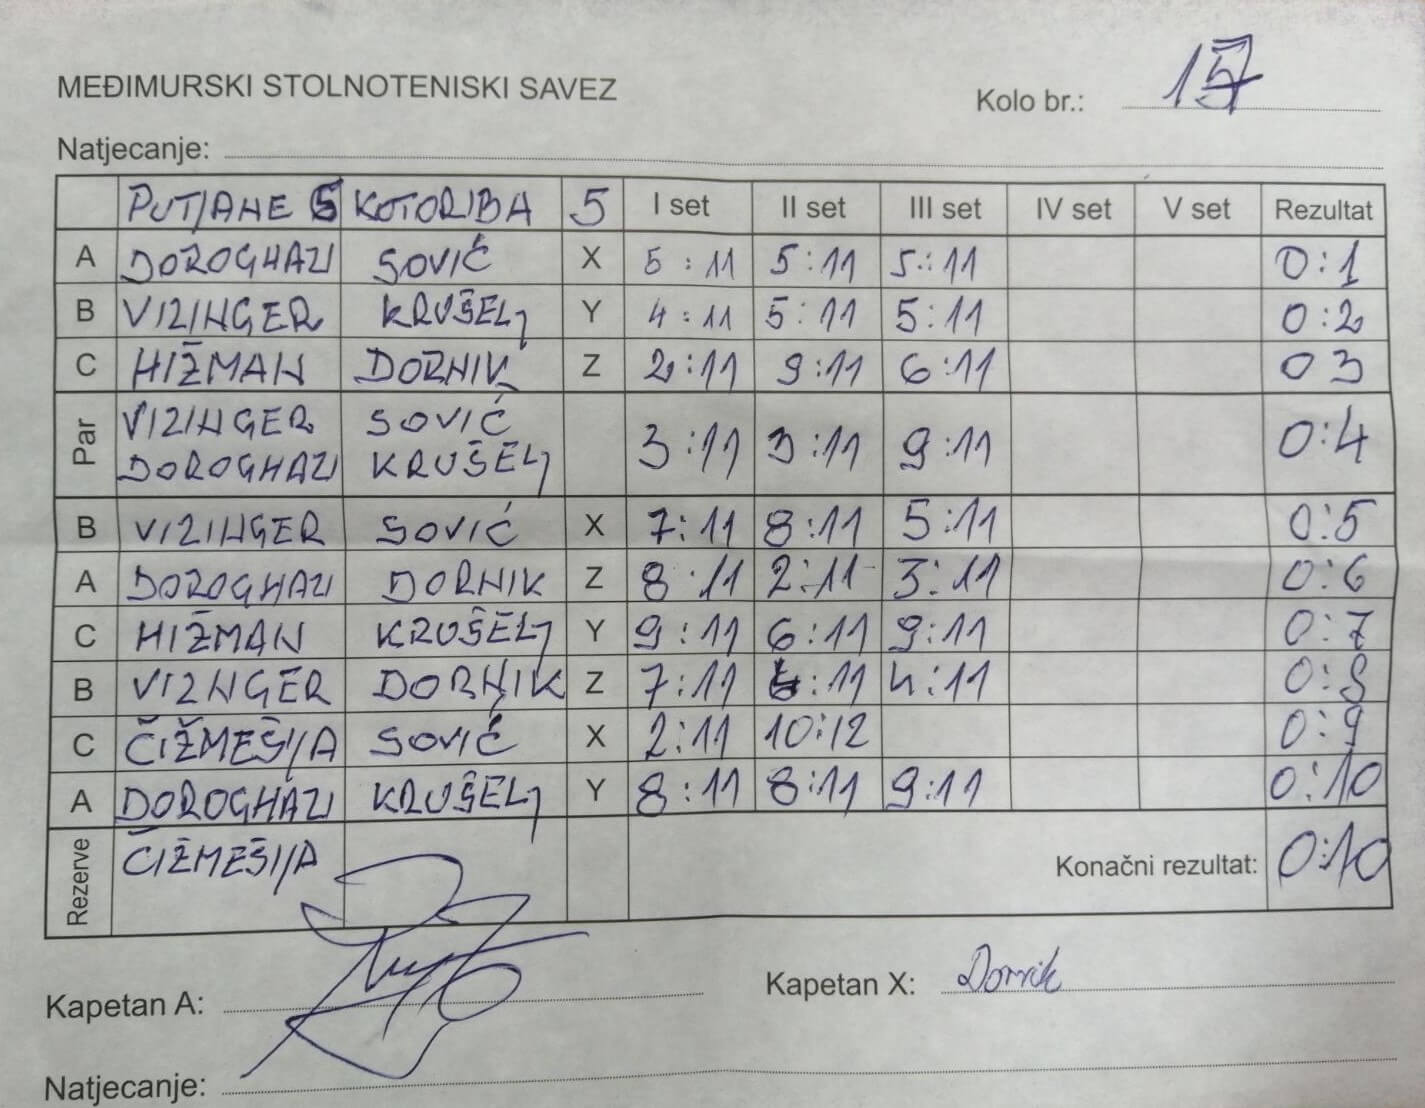 MEĐIMURSKI STOLNOTENISKI SAVEZ
Kolo br.: 17
Natjecanje:
PUTJANE 5 KOTORIBA 5 I set II set III set IV set V set Rezultat
A DOROGHAZI SOVIĆ X 5:11 5:11 5:11 0:1
B VIZINGER KRUŠELJ Y 4:11 5:11 5:11 0:2
C HIŽMAN DORNIK Z 2:11 9:11 6:11 0 3
Par VIZINGER SOVIĆ
DOROGHAZI KRUŠELJ 3:11 3:11 9:11 0:4
B VIZINGER SOVIĆ X 7:11 8:11 5:11 0:5
A DOROGHAZI DORNIK Z 8:11 2:11 3:11 0:6
C HIŽMAN KRUŠELJ Y 9:11 6:11 9:11 0:7
B VIZNGER DORNIK Z 7:11 :11 4:11 0:8
C ČIŽMEŠIJA SOVIĆ X 2:11 10:12 0:9
A DOROGHAZI KRUŠELJ Y 8:11 8:11 9:11 0:10
Rezerve ČIŽMEŠIJA Konačni rezultat: 0:10
Kapetan A: Kapetan X: Dornik
Natjecanje: